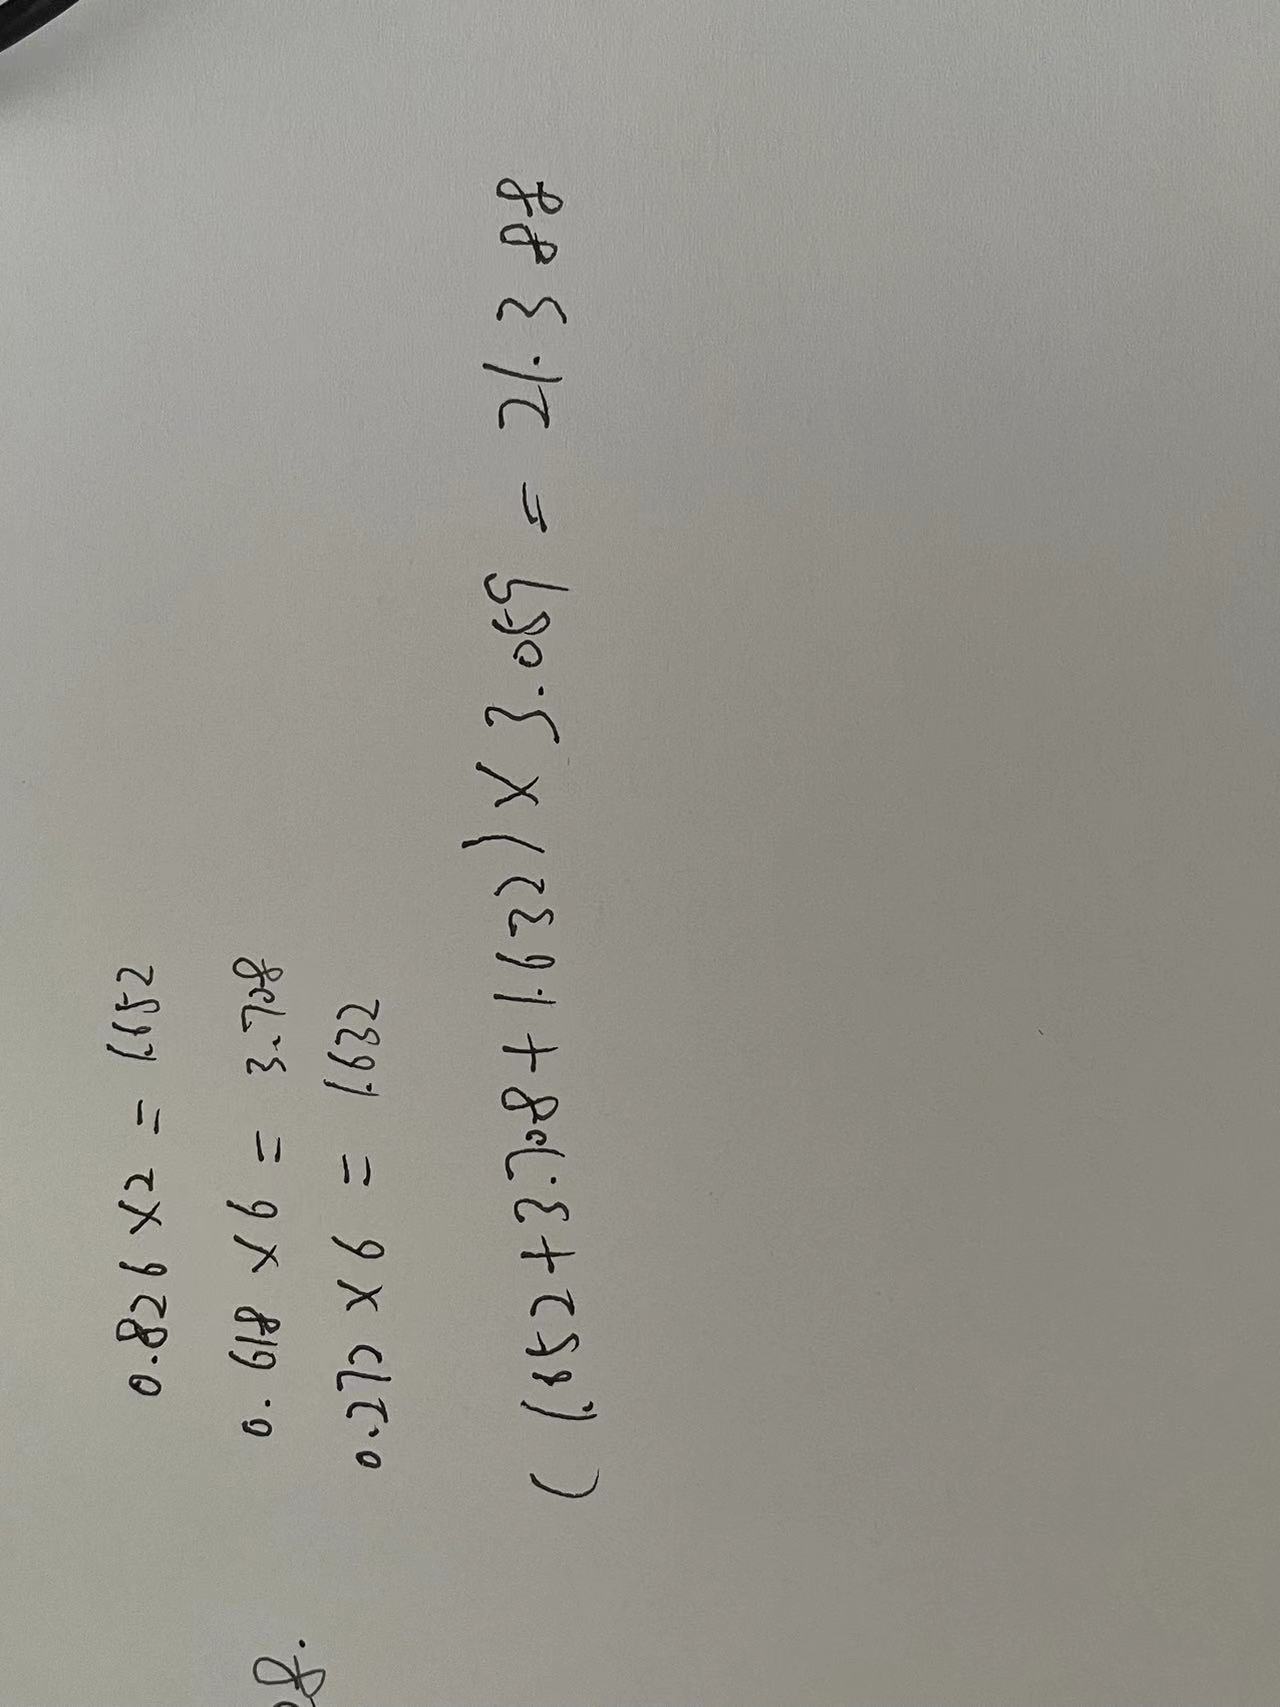 0.826 × 2 = 1.652
8.
0.618 × 6 = 3.708
0.272 × 6 = 1.632
(1.652+3.708+1.632)×3.059 = 21.388